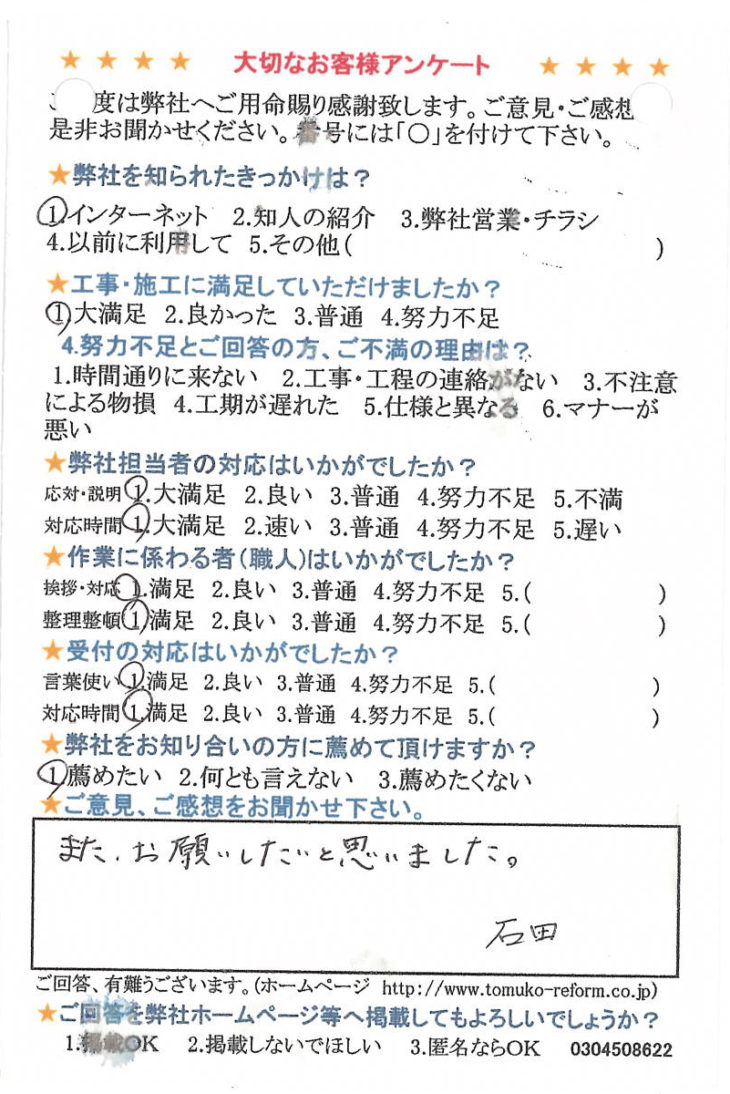 ★ ★ ★ ★ 大切なお客様アンケート ★ ★ ★ ★
度は弊社へご用命賜り感謝致します。ご意見・ご感想
是非お聞かせください。番号には「○」を付けて下さい。
★弊社を知られたきっかけは？
①インターネット 2.知人の紹介 3.弊社営業・チラシ
4.以前に利用して 5.その他( )
★工事・施工に満足していただけましたか？
①大満足 2.良かった 3.普通 4.努力不足
4.努力不足とご回答の方、ご不満の理由は？
1.時間通りに来ない 2.工事・工程の連絡がない 3.不注意
による物損 4.工期が遅れた 5.仕様と異なる 6.マナーが
悪い
★弊社担当者の対応はいかがでしたか？
応対・説明①.大満足 2.良い 3.普通 4.努力不足 5.不満
対応時間①.大満足 2.速い 3.普通 4.努力不足 5.遅い
★作業に係わる者(職人)はいかがでしたか？
挨拶・対応①.満足 2.良い 3.普通 4.努力不足 5.( )
整理整頓①満足 2.良い 3.普通 4.努力不足 5.( )
★受付の対応はいかがでしたか？
言葉使い①.満足 2.良い 3.普通 4.努力不足 5.( )
対応時間①.満足 2.良い 3.普通 4.努力不足 5.( )
★弊社をお知り合いの方に薦めて頂けますか？
①薦めたい 2.何とも言えない 3.薦めたくない
★ご意見、ご感想をお聞かせ下さい。
また、お願いしたいと思いました。
石田
ご回答、有難うございます。(ホームページ http://www.tomuko-reform.co.jp)
★ご回答を弊社ホームページ等へ掲載してもよろしいでしょうか？
1.掲載OK 2.掲載しないでほしい 3.匿名ならOK 0304508622